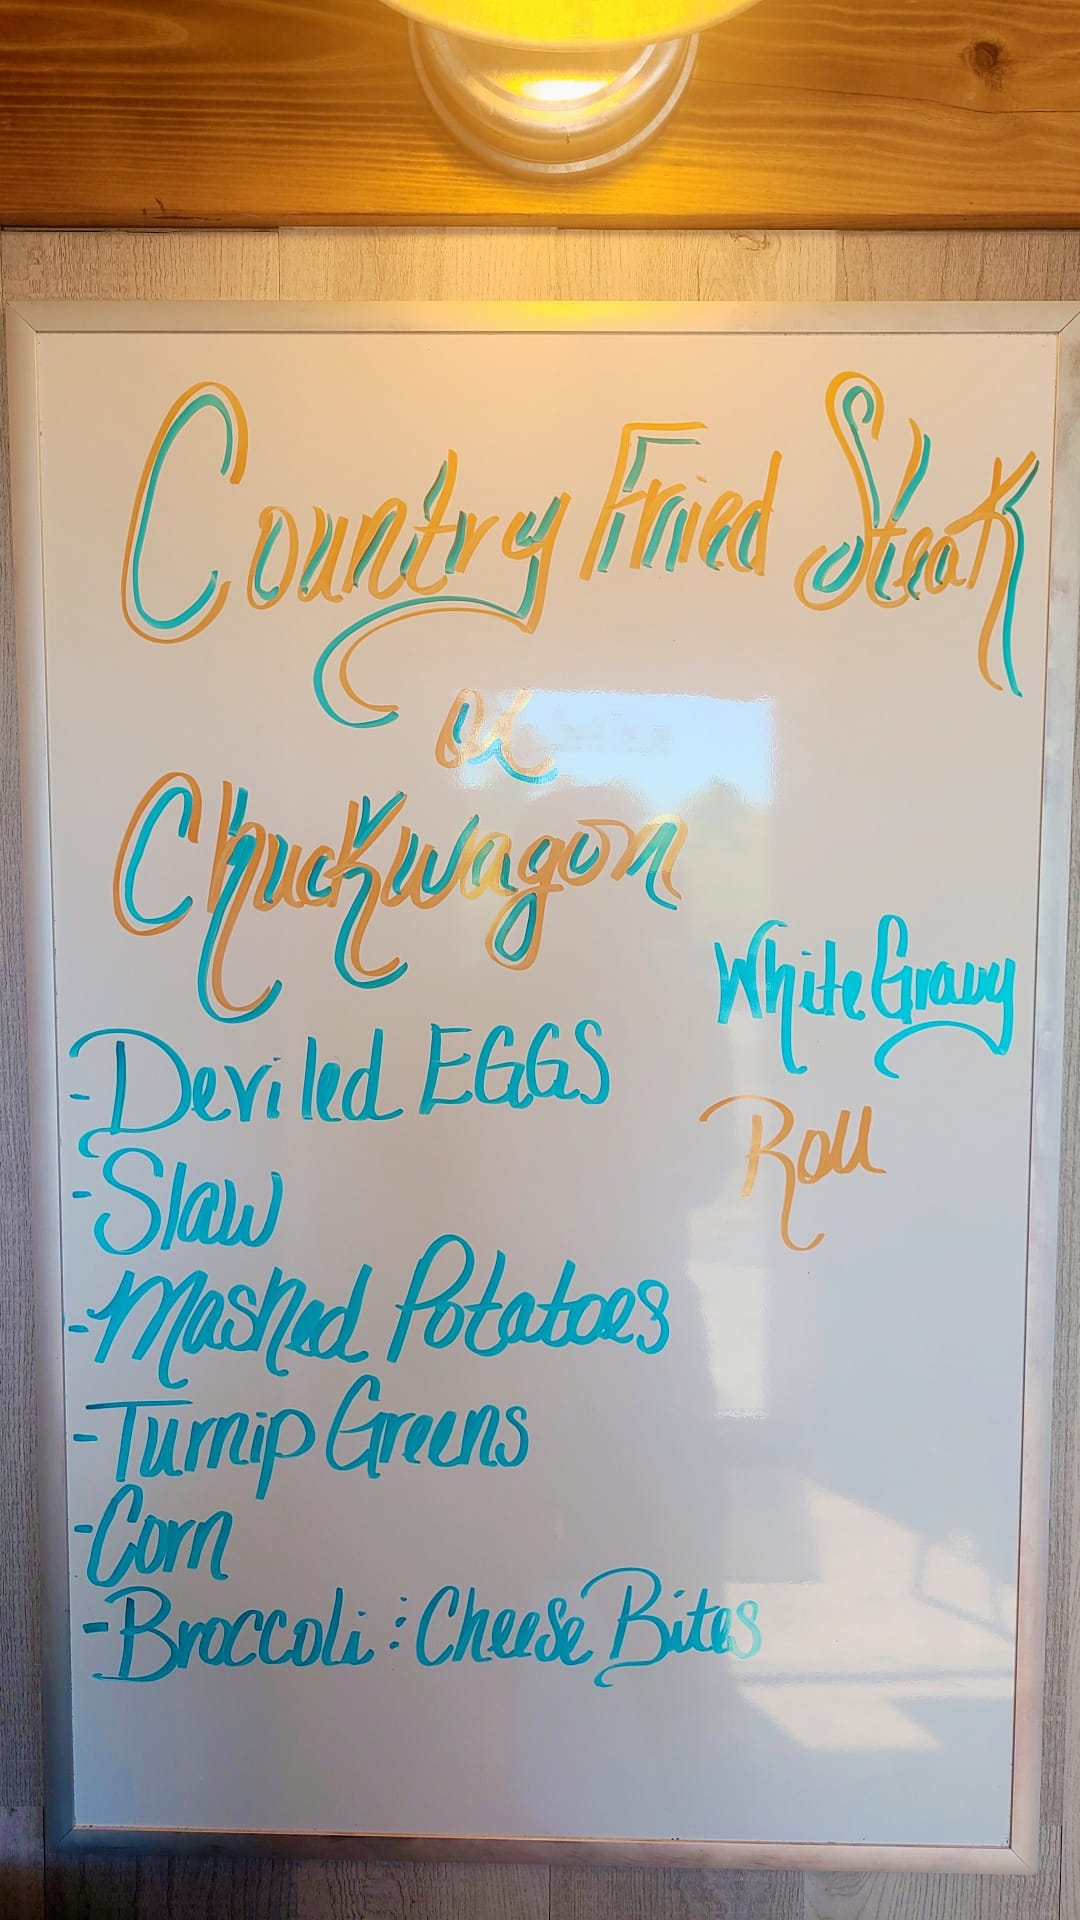 Country Fried Steak
or
Chuckwagon
White Gravy
- Deviled EGGS
Roll
- Slaw
- Mashed Potatoes
- Turnip Greens
- Corn
- Broccoli : Cheese Bites